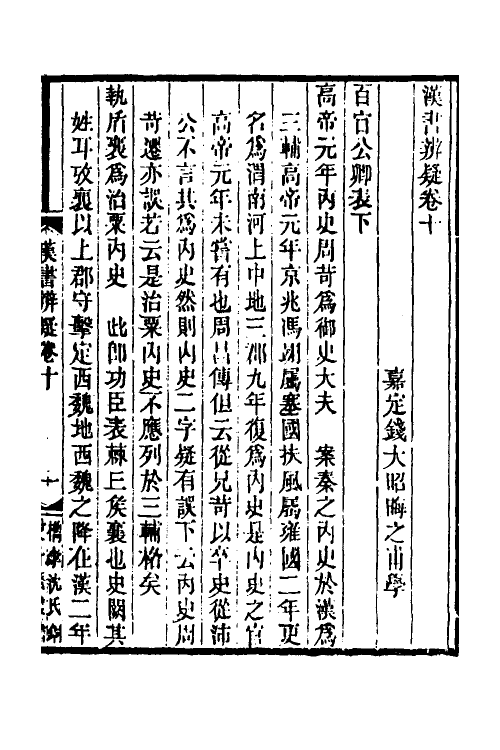 漢書辨疑卷十
嘉定錢大昭晦之甫學
百官公卿表下
高帝元年內史周苛爲御史大夫　案秦之內史於漢爲
三輔高帝元年京兆馮翊屬塞國扶風屬雍國二年更
名爲渭南河上中地三郡九年復爲內史是內史之官
高帝元年未嘗有也周昌傳但云從兄苛以卒史從沛
公不言其爲內史然則內史二字疑有誤下云內史周
苛遷亦誤若云是治粟內史不應列於三輔格矣
執盾襄爲治粟內史　此卽功臣表棘丘矦襄也史闕其
姓耳攷襄以上郡守擊定西魏地西魏之降在漢二年
漢書辨疑卷十
十一
沈氏